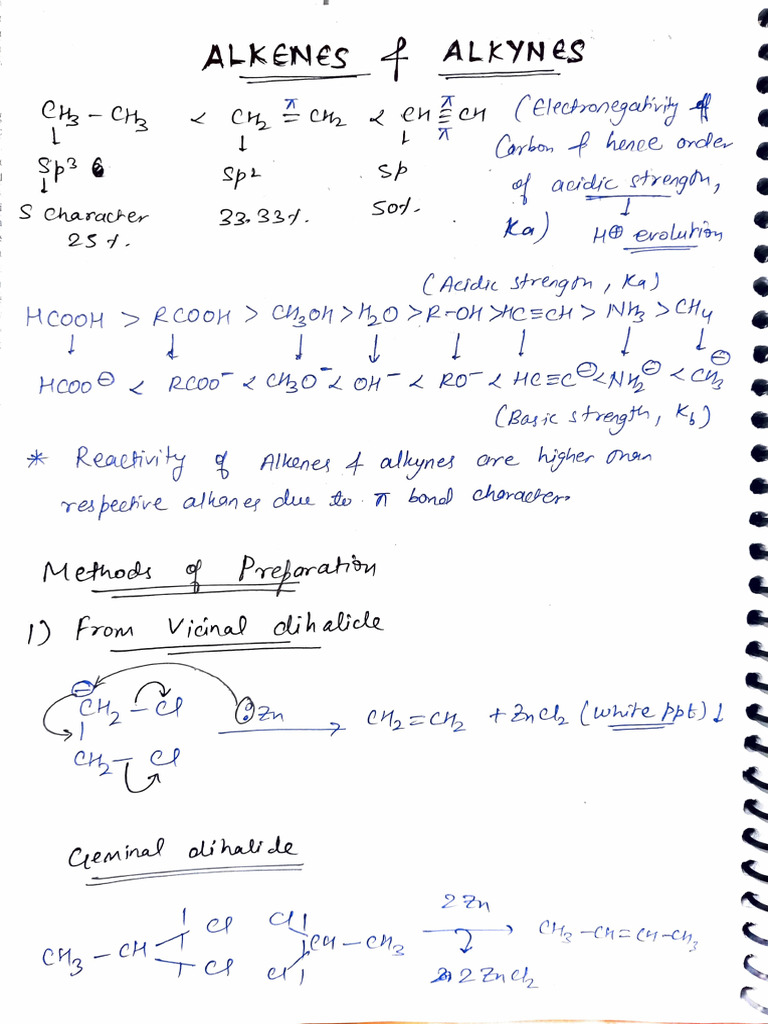 ALKENES & ALKYNES
CH3 – CH3 < CH2 = CH2 < CH ≡ CH (Electronegativity of
π π π
Carbon & hence order
Sp3 Sp2 Sp
of acidic strength,
S Character 33.33% 50%
25% Ka) H⊕ evolution
(Acidic strength, Ka)
HCOOH > RCOOH > CH3OH > H2O > R–OH > HC≡CH > NH3 > CH4
↓ ↓ ↓ ↓ ↓ ↓ ↓ ↓
HCOO⊖ < RCOO– < CH3O– < OH– < RO– < HC≡C⊖ < NH2⊖ < CH3⊖
(Basic strength, Kb)
* Reactivity of Alkenes & alkynes are higher than
respective alkanes due to π bond character.
Methods of Preparation
1) From Vicinal dihalide
⊖
CH2 – Cl :Zn → CH2=CH2 + ZnCl2 (white ppt)↓
CH2 – Cl
Geminal dihalide
Cl Cl 2Zn
CH3 – CH CH – CH3 → CH3 – CH=CH–CH3
Cl Cl 2ZnCl2